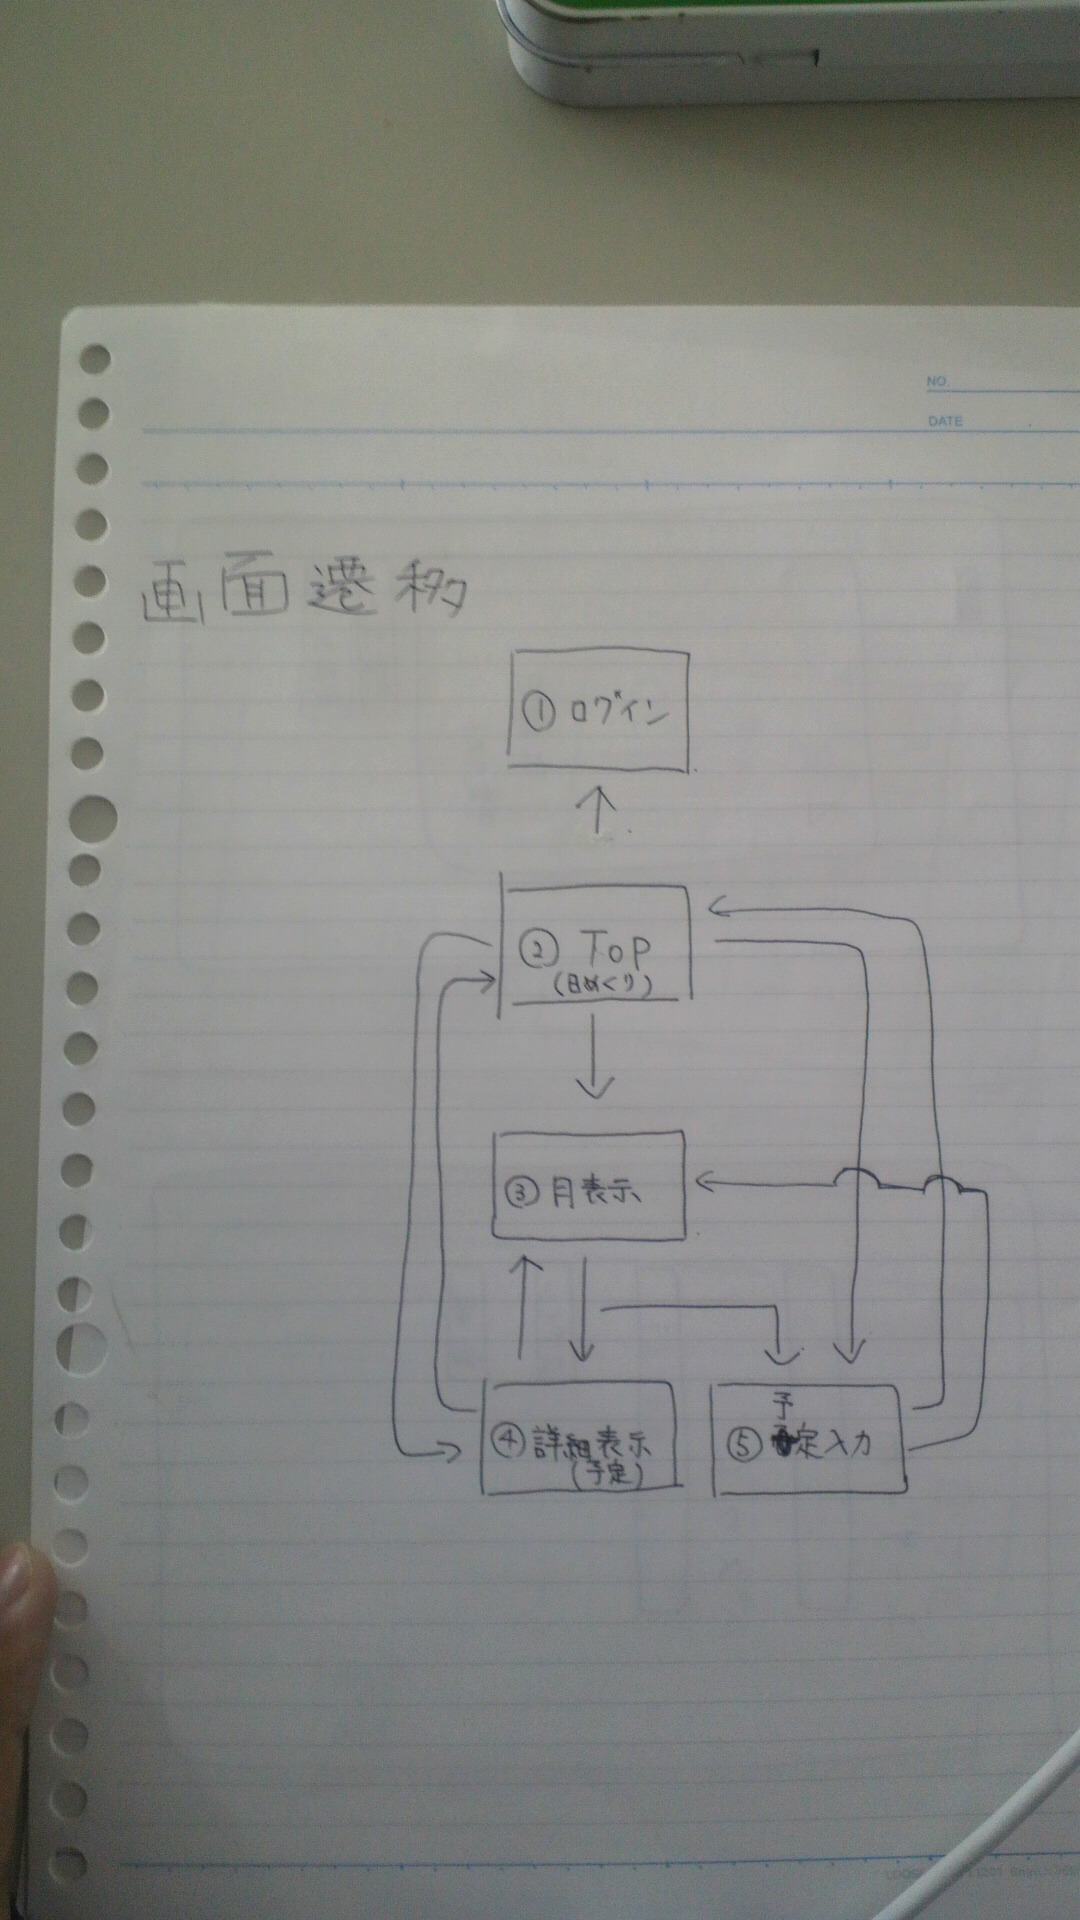 NO.
DATE
画面遷移
① ログイン
② TOP
(日めくり)
③ 月表示
④ 詳細表示
(予定)
⑤ 予定入力